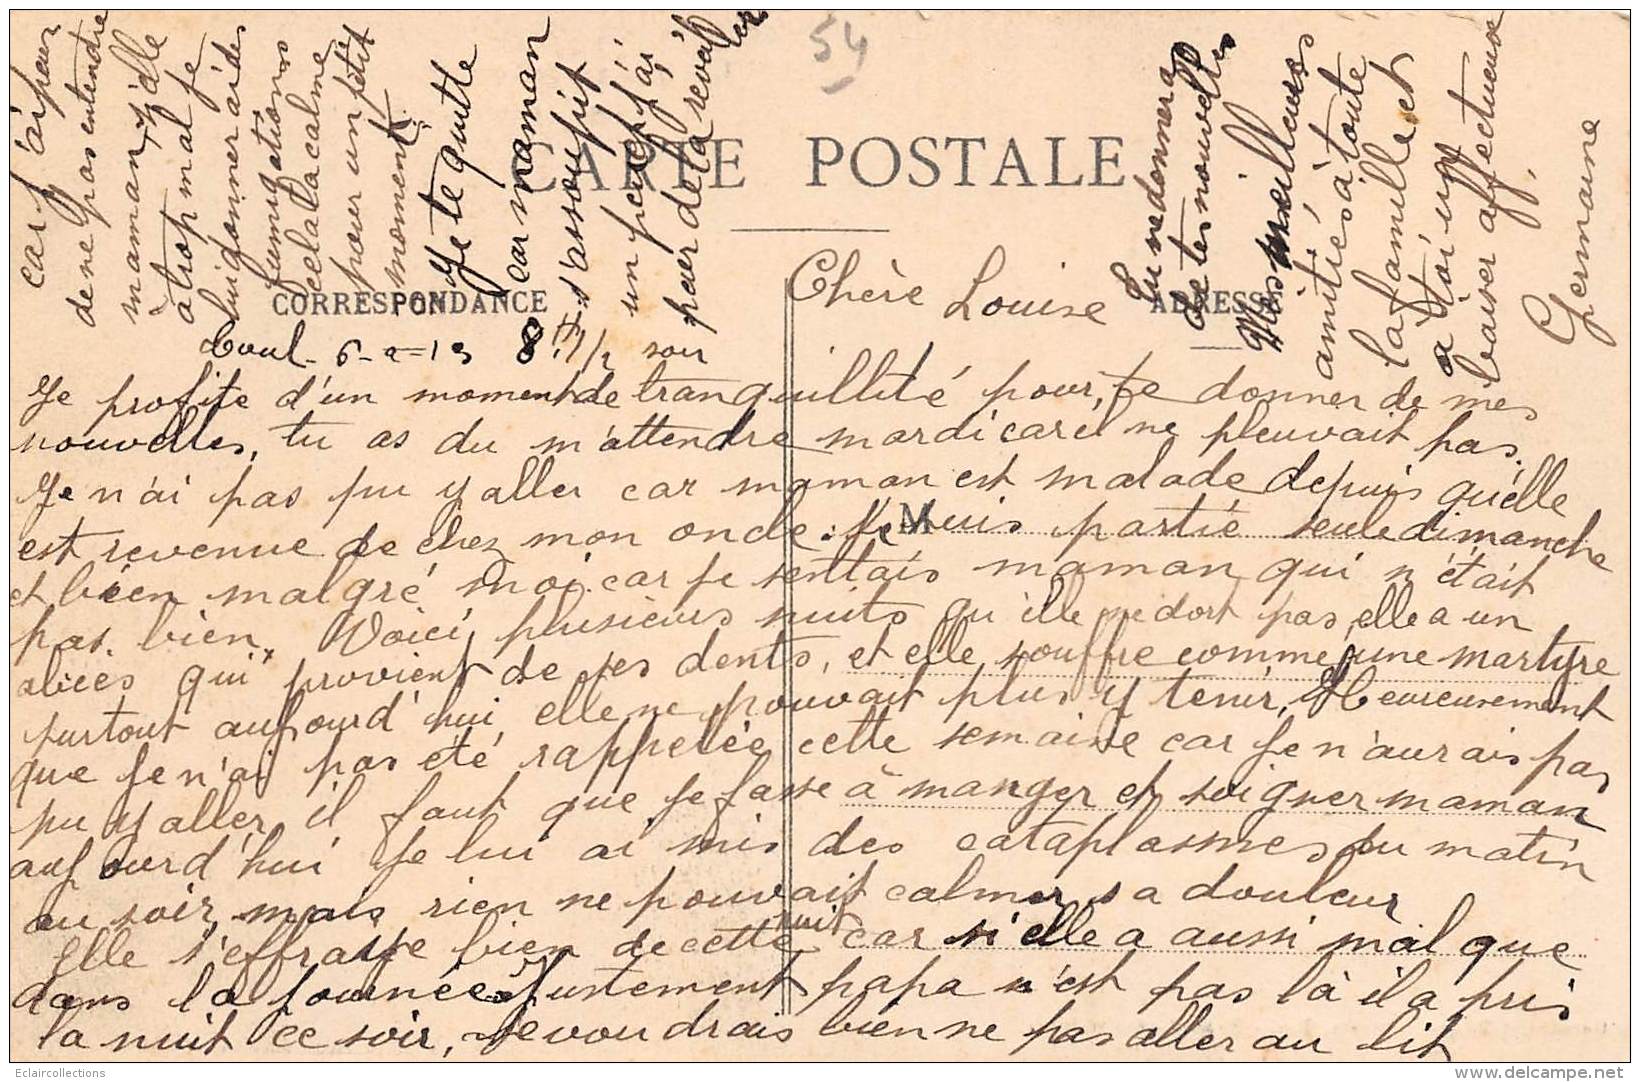 54
CARTE POSTALE
CORRESPONDANCE
ADRESSE
M
Toul - 6-2-13 8H 1/2 soir
Chère Louise
Je profite d'un moment de tranquillité pour, te donner de mes
nouvelles, tu as du m'attendre mardi car il ne pleuvait pas.
Je n'ai pas pu y aller car maman est malade depuis qu'elle
est revenue de chez mon oncle. Je suis partie seule dimanche
et bien malgré moi car je sentais maman qui n'était
pas bien. Voici plusieurs nuits qu'ille ne dort pas, elle a un
abcès qui provient de ses dents, et elle souffre comme une martyre
surtout aujourd'hui elle ne pouvait plus y tenir, Heureusement
que je n'ai pas été rappelée cette semaine car je n'aurais pas
pu y aller il faut que je fasse à manger et soigner maman
aujourd'hui je lui ai mis des cataplasmes du matin
au soir, mais rien ne pouvait calmer sa douleur
Elle s'effraye bien de cette nuit car si elle a aussi mal que
dans la journée. Justement papa n'est pas là il a pris
la nuit ce soir, Je voudrais bien ne pas aller au lit
car j'ai peur
de ne pas entendre
maman, s'ille
à trop mal je
lui donnerai des
fumigations
cela la calme
pour un petit
moment.
Je te quitte
car maman
s'assoupit
un peu et j'ai
peur de la reveiller
Tu me donnera
de tes nouvelles
Mes meilleures
amitiés à toute
la famille et
à toi un
baiser affectueux,
Germaine
Eclaircollections
delcampe.net